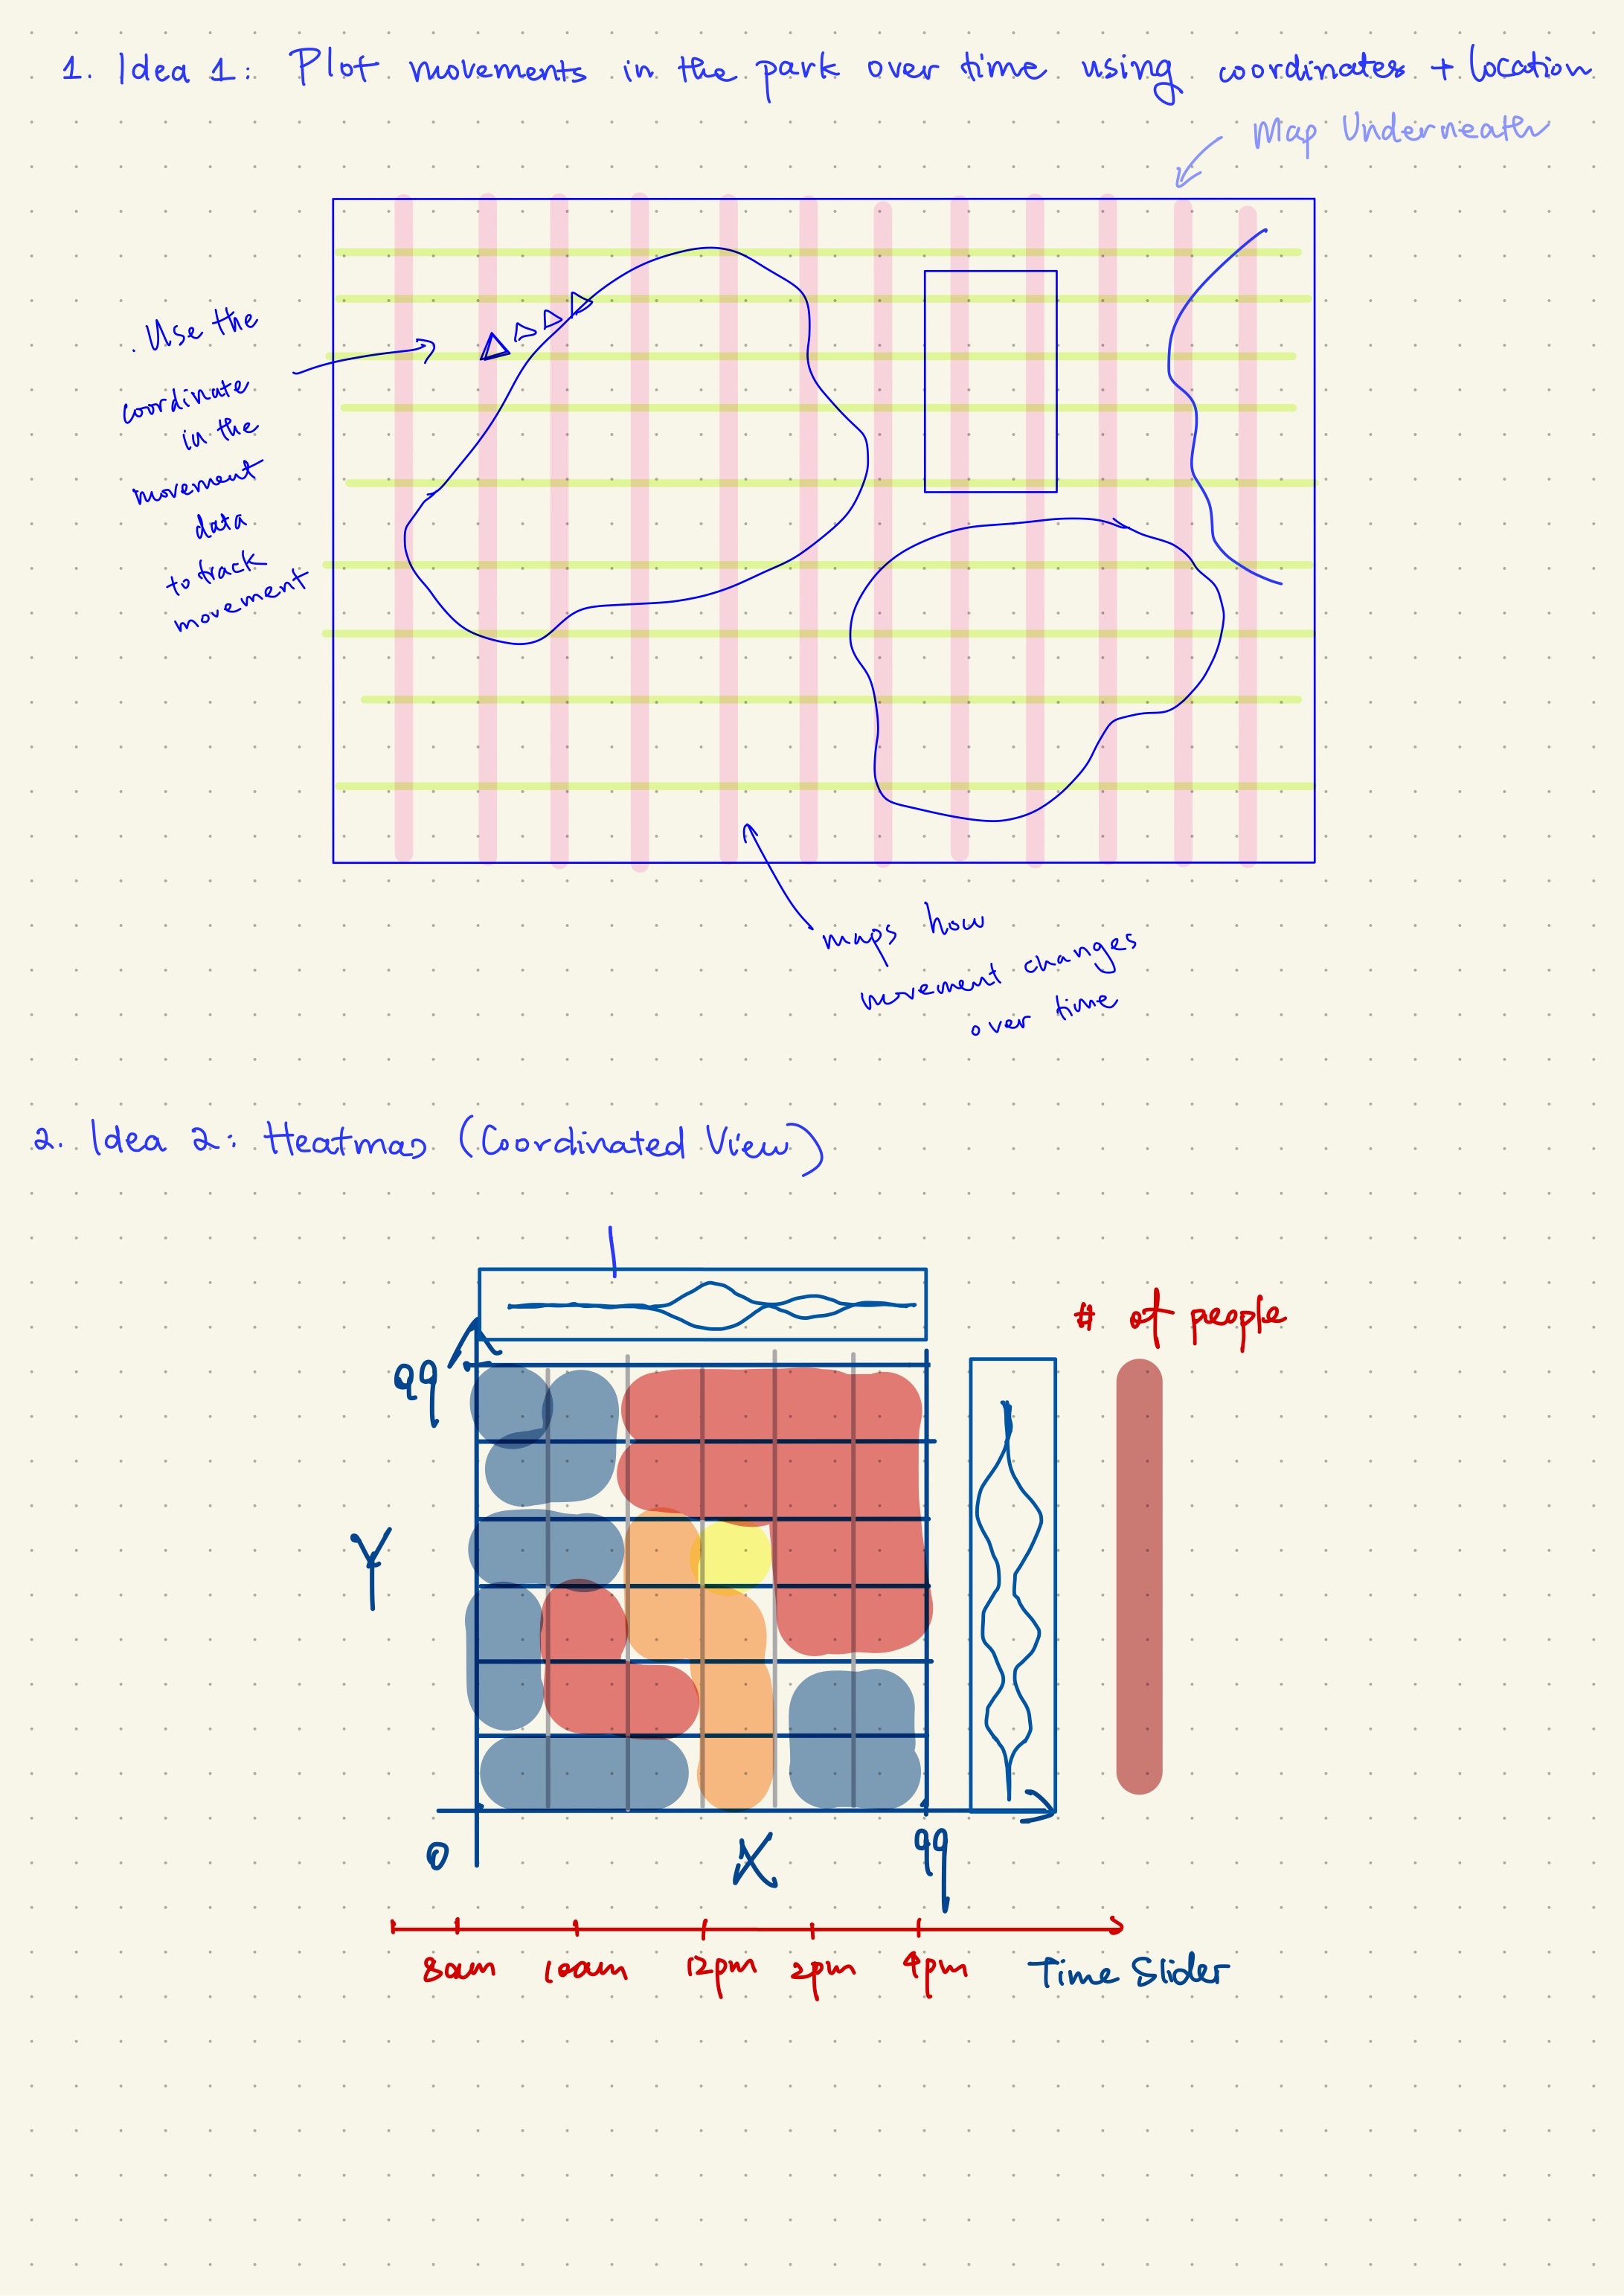 1. Idea 1: Plot movements in the park over time using coordinates + location
Map Underneath
. Use the
coordinate
in the
movement
data
to track
movement
maps how
movement changes
over time
2. Idea 2: Heatmap (Coordinated View)
# of people
99
Y
0
X
99
8am 10am 12pm 2pm 4pm Time Slider